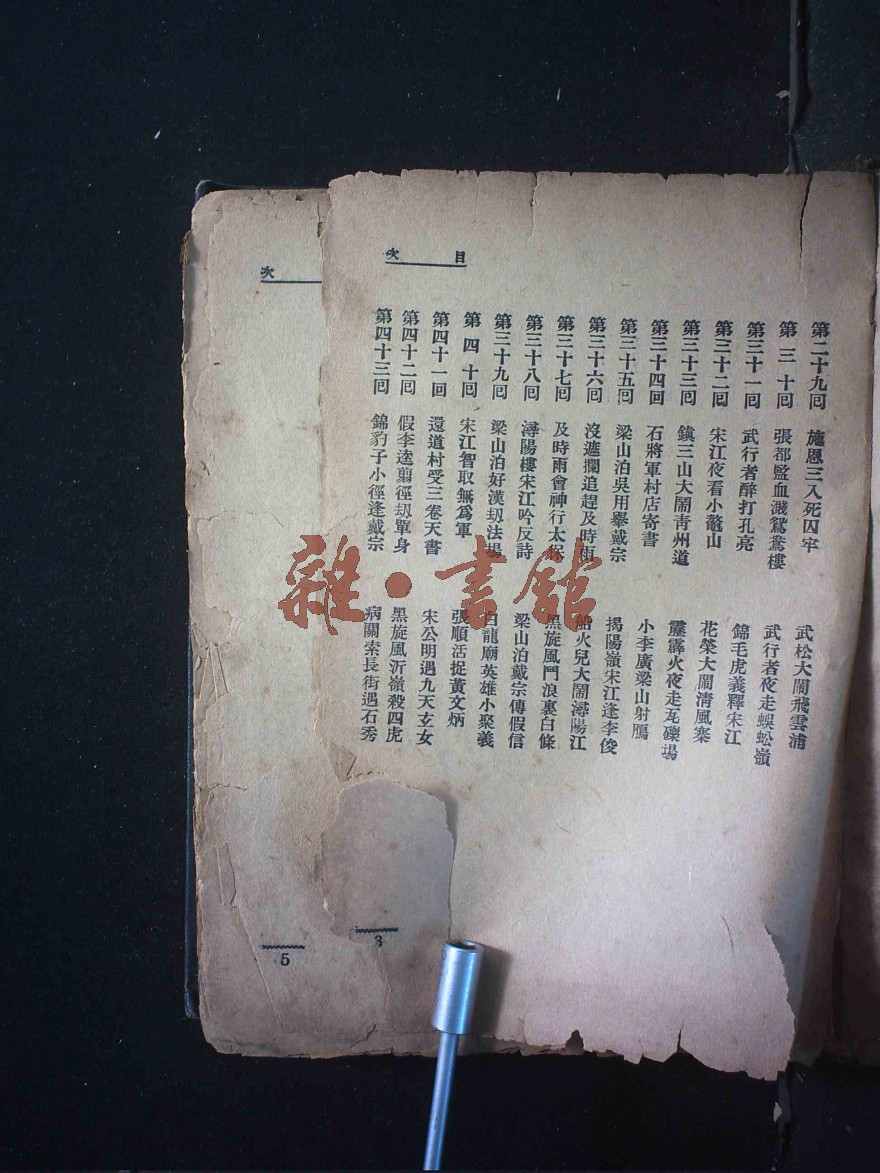 目次
第二十九回 施恩三入死囚牢 武松大鬧飛雲浦
第三十回 張都監血濺鴛鴦樓 武行者夜走蜈蚣嶺
第三十一回 武行者醉打孔亮 錦毛虎義釋宋江
第三十二回 宋江夜看小鼇山 花榮大鬧淸風寨
第三十三回 鎭三山大鬧靑州道 霹靂火夜走瓦礫場
第三十四回 石將軍村店寄書 小李廣梁山射鴈
第三十五回 梁山泊吳用舉戴宗 揭陽嶺宋江逢李俊
第三十六回 沒遮攔追趕及時雨 船火兒大鬧潯陽江
第三十七回 及時雨會神行太保 黑旋風鬥浪裏白條
第三十八回 潯陽樓宋江吟反詩 梁山泊戴宗傳假信
第三十九回 梁山泊好漢刼法場 白龍廟英雄小聚義
第四十回 宋江智取無爲軍 張順活捉黃文炳
第四十一回 還道村受三卷天書 宋公明遇九天玄女
第四十二回 假李逵翦徑刼單身 黑旋風沂嶺殺四虎
第四十三回 錦豹子小徑逢戴宗 病關索長街遇石秀
3
次
5
雜·書館